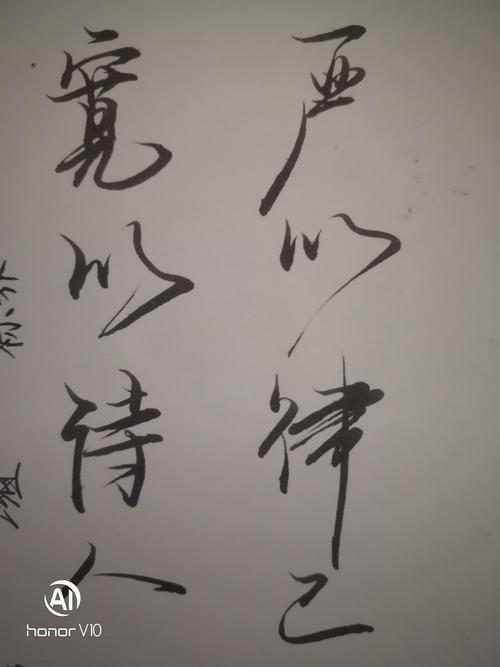 严以律己
宽以待人
AI
honor V10